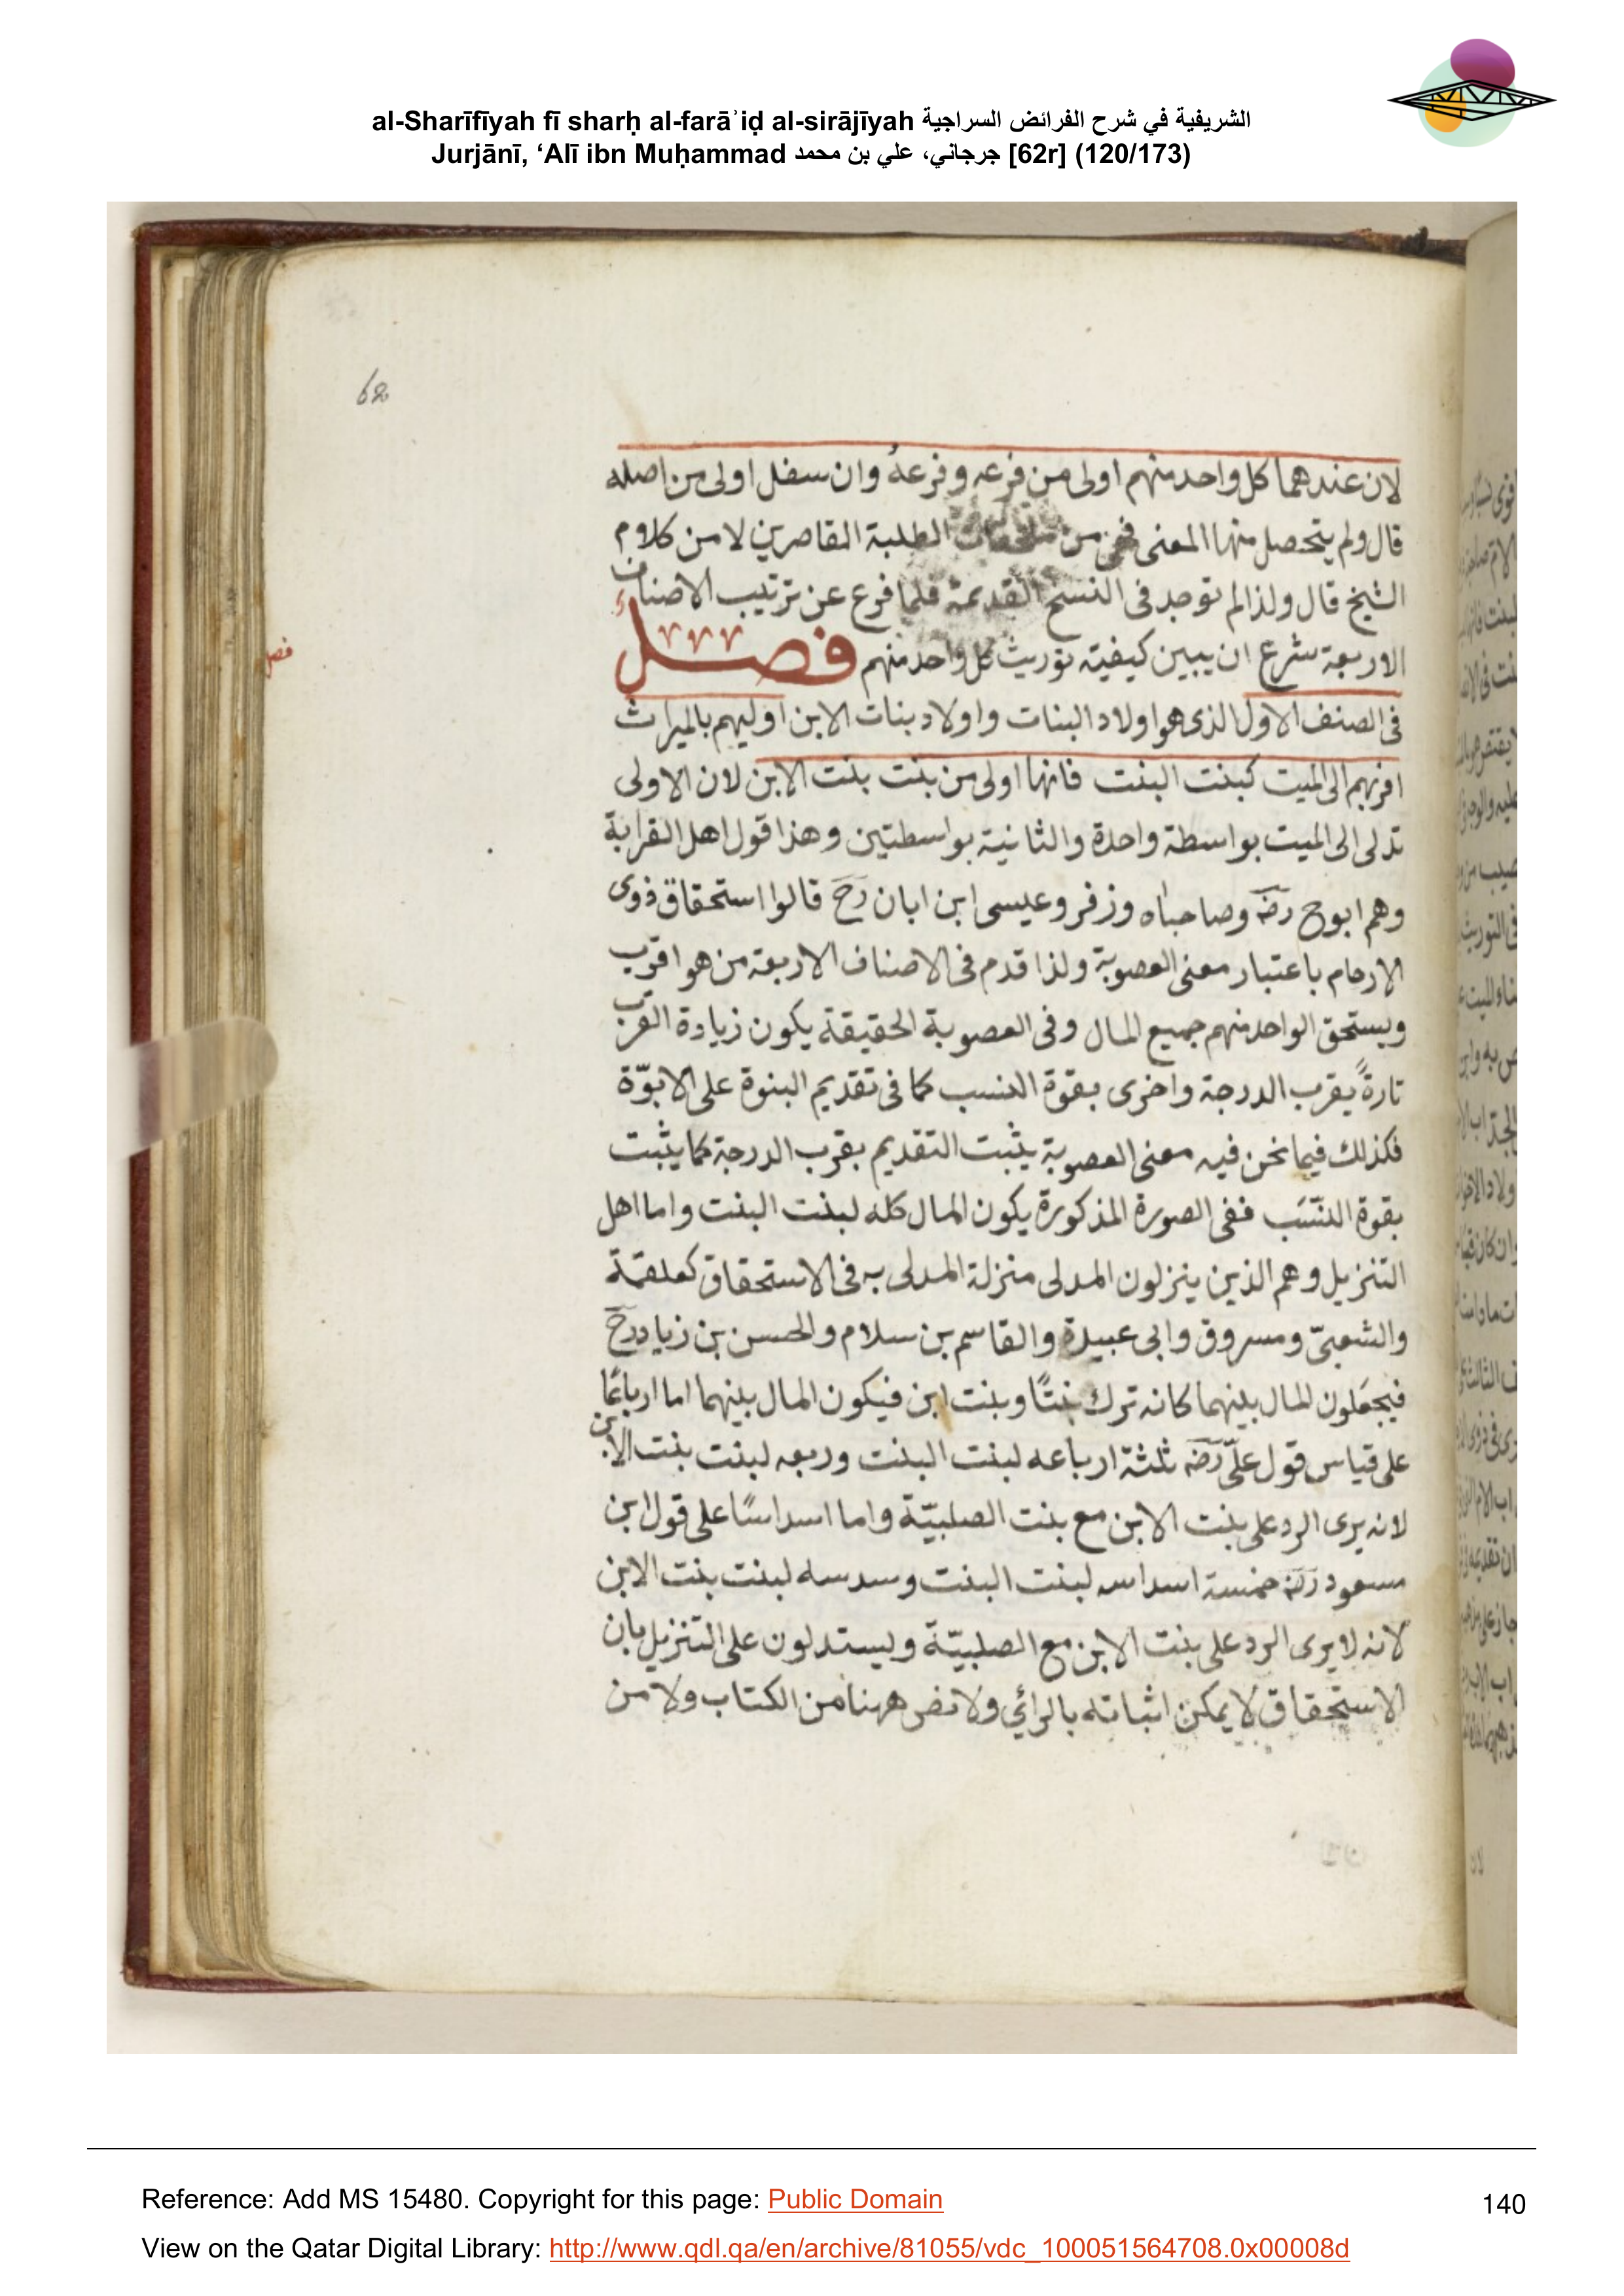 al-Sharīfīyah fī sharḥ al-farāʾiḍ al-sirājīyah الشريفية في شرح الفرائض السراجية
Jurjānī, ‘Alī ibn Muḥammad جرجاني، علي بن محمد [62r] (120/173)
62
لان عندهما كل واحد منهم اولى من فرعه وفرعهُ وان سفل اولى من اصله
قال ولم يتحصل منها المعنى فهى من الطلبة القاصرين لا من كلام
الشيخ قال ولذا لم توجد فى النسخ القديمة فلما فرغ عن ترتيب الاصناف
الاربعة شرع ان يبين كيفية توريث كل واحد منهم فصل
فصل
فى الصنف الاول الذى هو اولاد البنات واولاد بنات الابن اوليهم بالميراث
اقربهم الى الميت كبنت البنت فانها اولى من بنت بنت الابن لان الاولى
تدلى الى الميت بواسطة واحدة والثانية بواسطتين وهذا قول اهل القرابة
وهم ابوح رضه وصاحباه وزفر وعيسى ابن ابان رح قالوا استحقاق ذوى
الارحام باعتبار معنى العصوبة ولذا قدم فى الاصناف الاربعة من هو اقرب
ويستحق الواحد منهم جميع المال وفى العصوبة الحقيقة يكون زيادة القرب
تارةً بقرب الدرجة واخرى بقوة النسب كما فى تقديم البنوة على الابوّة
فكذلك فيما نحن فيه معنى العصوبة يثبت التقديم بقرب الدرجة كما يثبت
بقوة النسَب ففى الصورة المذكورة يكون المال كله لبنت البنت واما اهل
التنزيل وهم الذين ينزلون المدلى منزلة المدلى به فى الاستحقاق كعلقمة
والشعبىّ ومسروق وابى عبيدة والقاسم بن سلام والحسن بن زياد رح
فيجعَلون المال بينهما كانه ترك بنتًا وبنت ابن فيكون المال بينهما اما ارباعًا
على قياس قول علىّ رضه ثلثة ارباعه لبنت البنت وربعه لبنت بنت الابن
لانه يرى الرد على بنت الابن مع بنت الصلبيّة واما اسداسًا على قول ابن
مسعود رضه خمسة اسداسه لبنت البنت وسدسه لبنت بنت الابن
لانه لا يرى الرد على بنت الابن مع الصلبيّة ويستدلون على التنزيل بان
الاستحقاق لا يمكن اثباته بالرائي ولا نص ههنا من الكتاب ولا من
Reference: Add MS 15480. Copyright for this page: Public Domain
140
View on the Qatar Digital Library: http://www.qdl.qa/en/archive/81055/vdc_100051564708.0x00008d